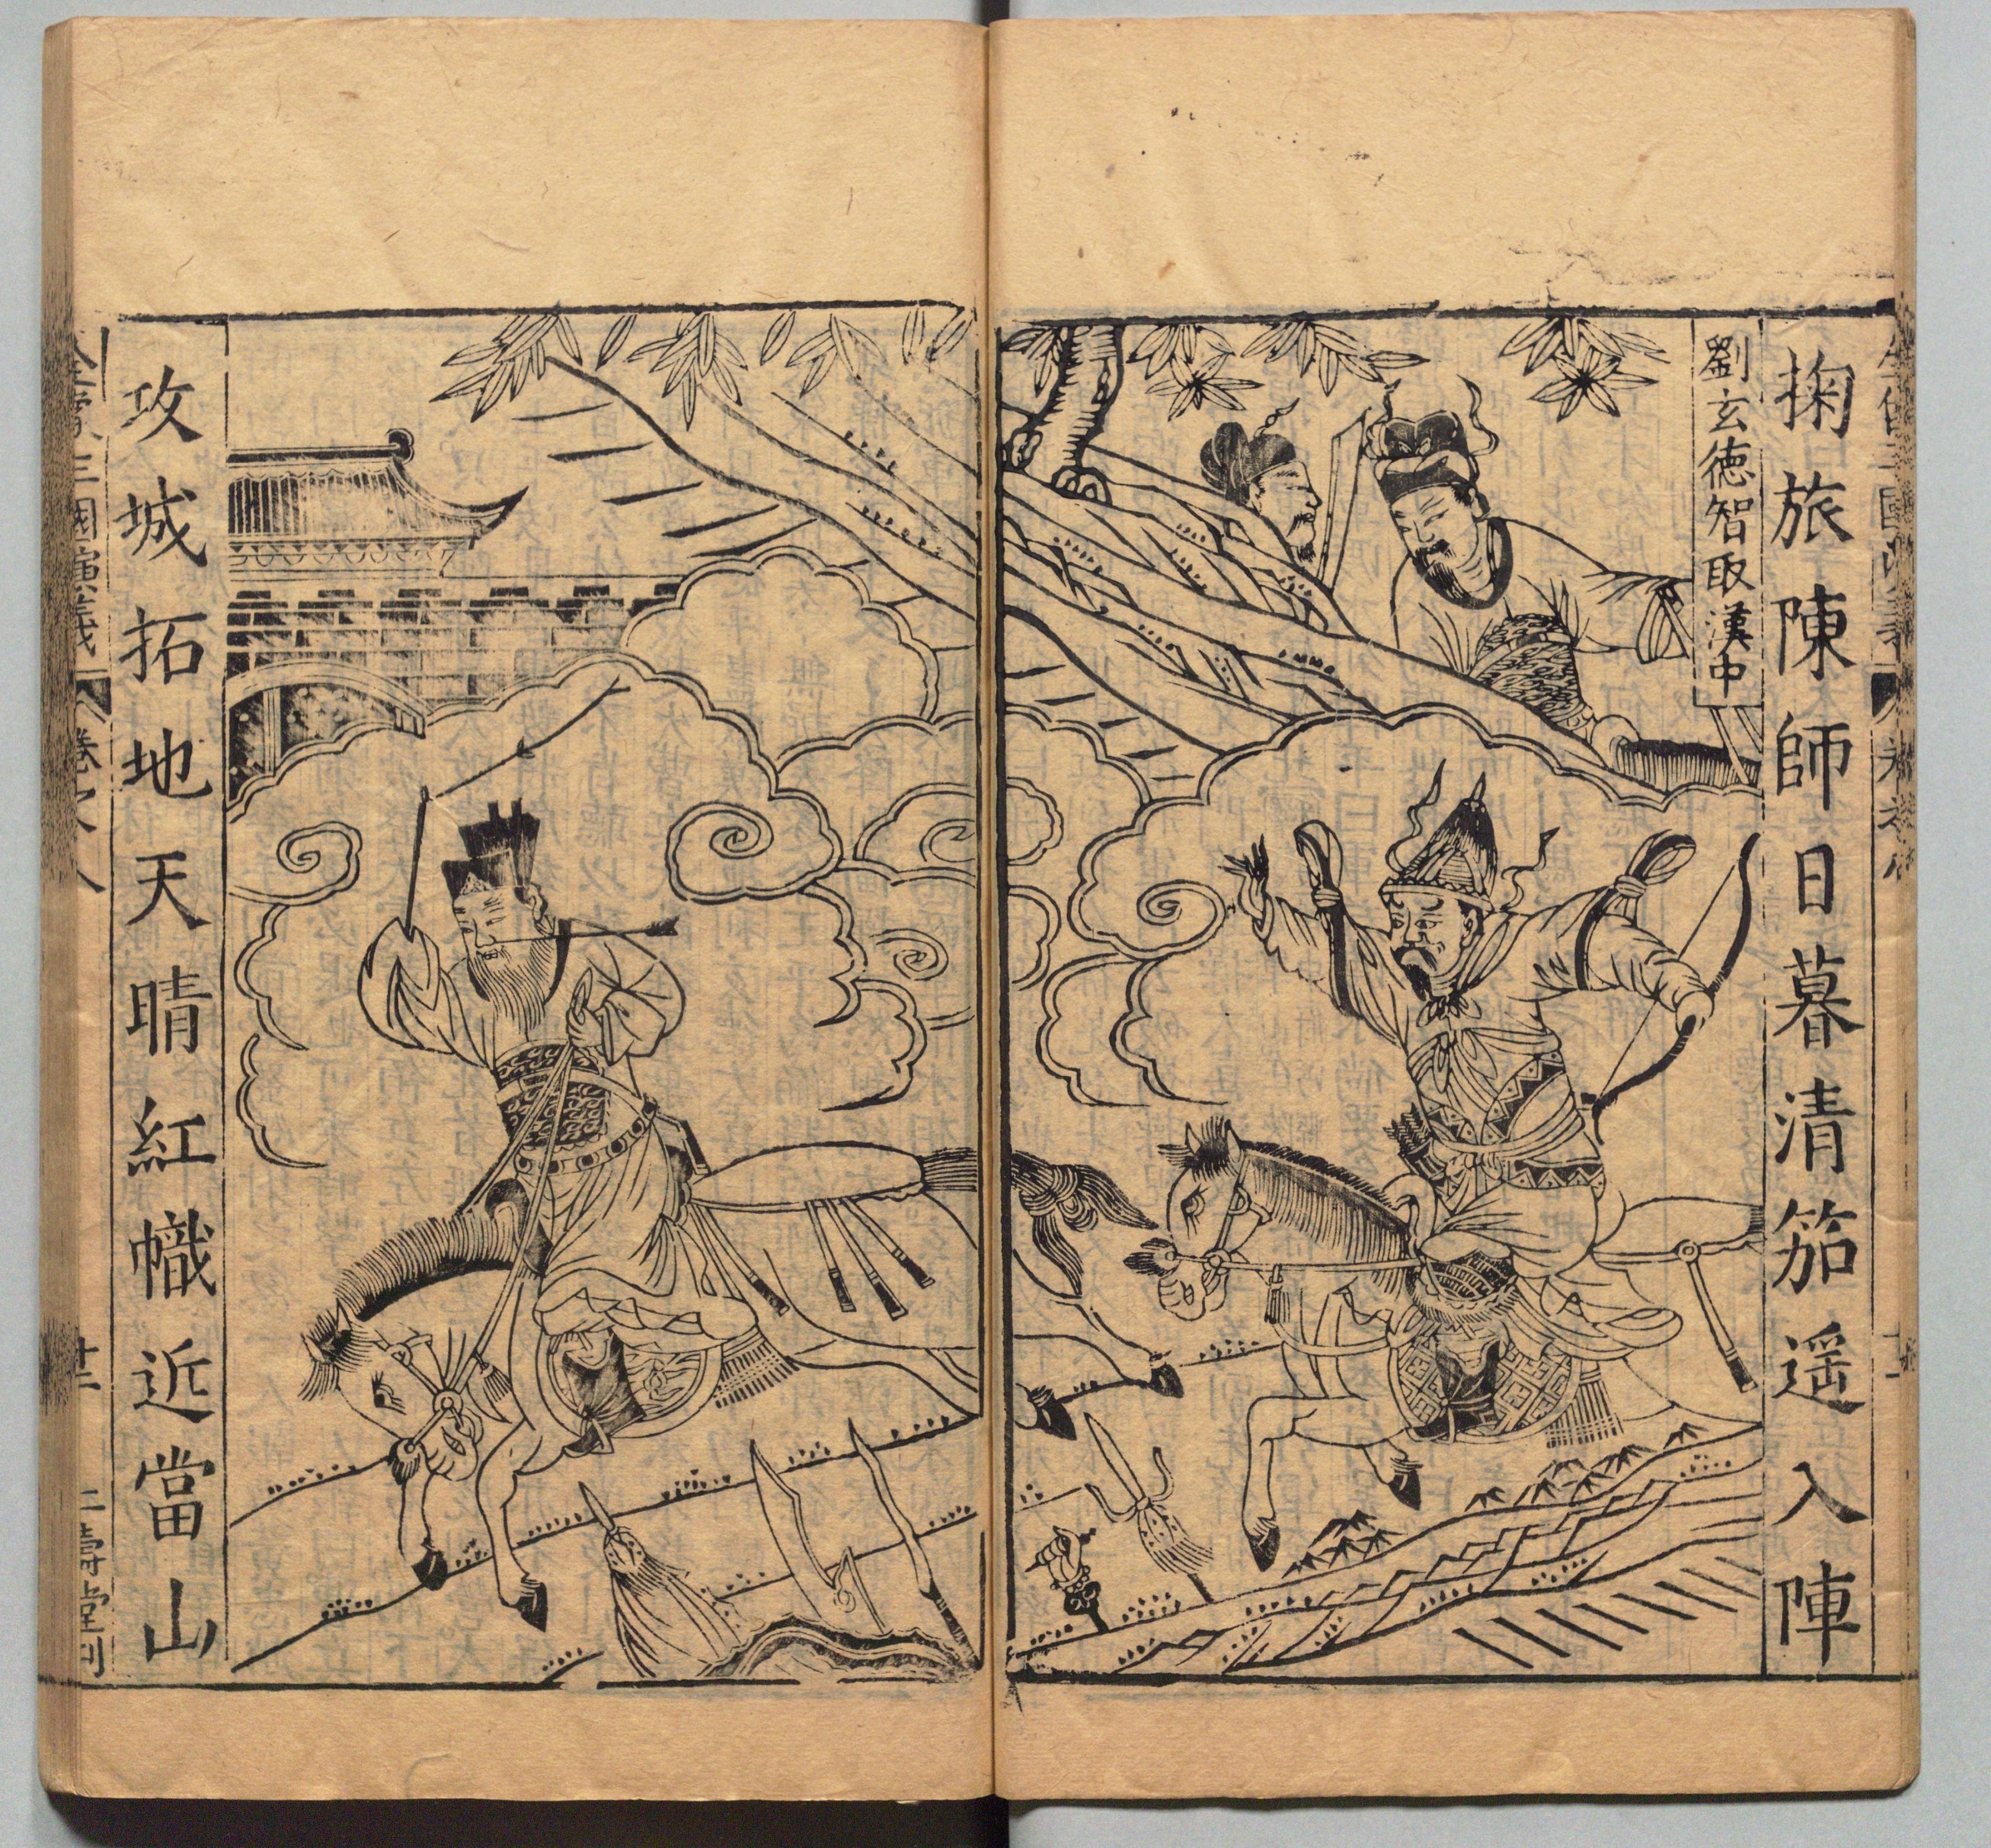 掬旅陳師日暮清笳遥入陣
劉玄徳智取漢中
攻城拓地天晴紅幟近當山
三國演義
卷之八
壽堂刊